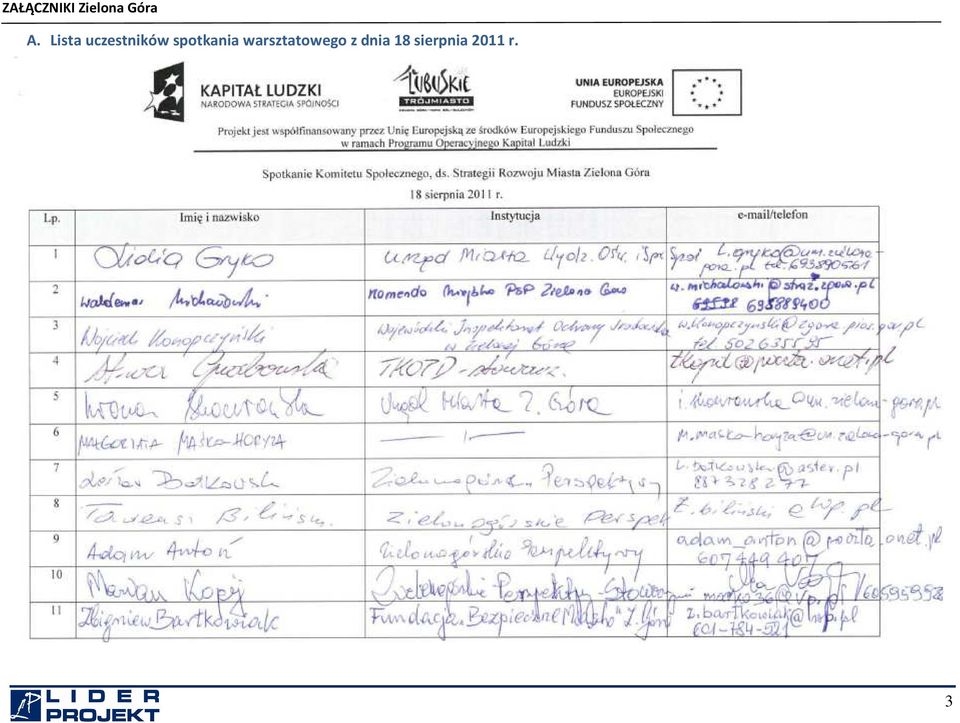 ZAŁĄCZNIKI Zielona Góra
A. Lista uczestników spotkania warsztatowego z dnia 18 sierpnia 2011 r.
KAPITAŁ LUDZKI
NARODOWA STRATEGIA SPÓJNOŚCI
LUBUSKIE
TRÓJMIASTO
UNIA EUROPEJSKA
EUROPEJSKI
FUNDUSZ SPOŁECZNY
Projekt jest współfinansowany przez Unię Europejską ze środków Europejskiego Funduszu Społecznego
w ramach Programu Operacyjnego Kapitał Ludzki
Spotkanie Komitetu Społecznego, ds. Strategii Rozwoju Miasta Zielona Góra
18 sierpnia 2011 r.
Lp. Imię i nazwisko Instytucja e-mail/telefon
1 Lidia Gryko Urząd Miasta Wydz. Ośw. i Spr Społ L.gryko@um.zielona-
gora.pl tel. 693890561
2 Waldemar Michałowski Komenda Miejska PSP Zielona Góra w.michalowski@straz.zgora.pl
693889400
3 Wojciech Konopczyński Wojewódzki Inspektorat Ochrony Środowiska w.konopczynski@zgora.pios.gov.pl
w Zielonej Górze tel. 502635595
4 TKOTD - stowarz. tkopil@poczta.onet.pl
5 Iwona Skowrońska Urząd Miasta Z. Góra i.skowronska@um.zielona-gora.pl
6 MAŁGORZATA MAŚKO-HORYZA —"— m.masko-horyza@um.zielona-gora.pl
7 Botkowski Zielonogórskie Perspektywy @aster.pl
887328277
8 Biliński Zielonogórskie Perspek z.biliński@wp.pl
9 Adam Antoń Zielonogórskie Perspektywy adam_anton@poczta.onet.pl
607449407
10 Marian Zielonogórskie Perspektywy - Stowa
11 Zbigniew Bartkowiak Fundacja "Bezpieczne Miasto" Z. Góra z.bartkowiak@
601-784-521
LIDER
PROJEKT
3